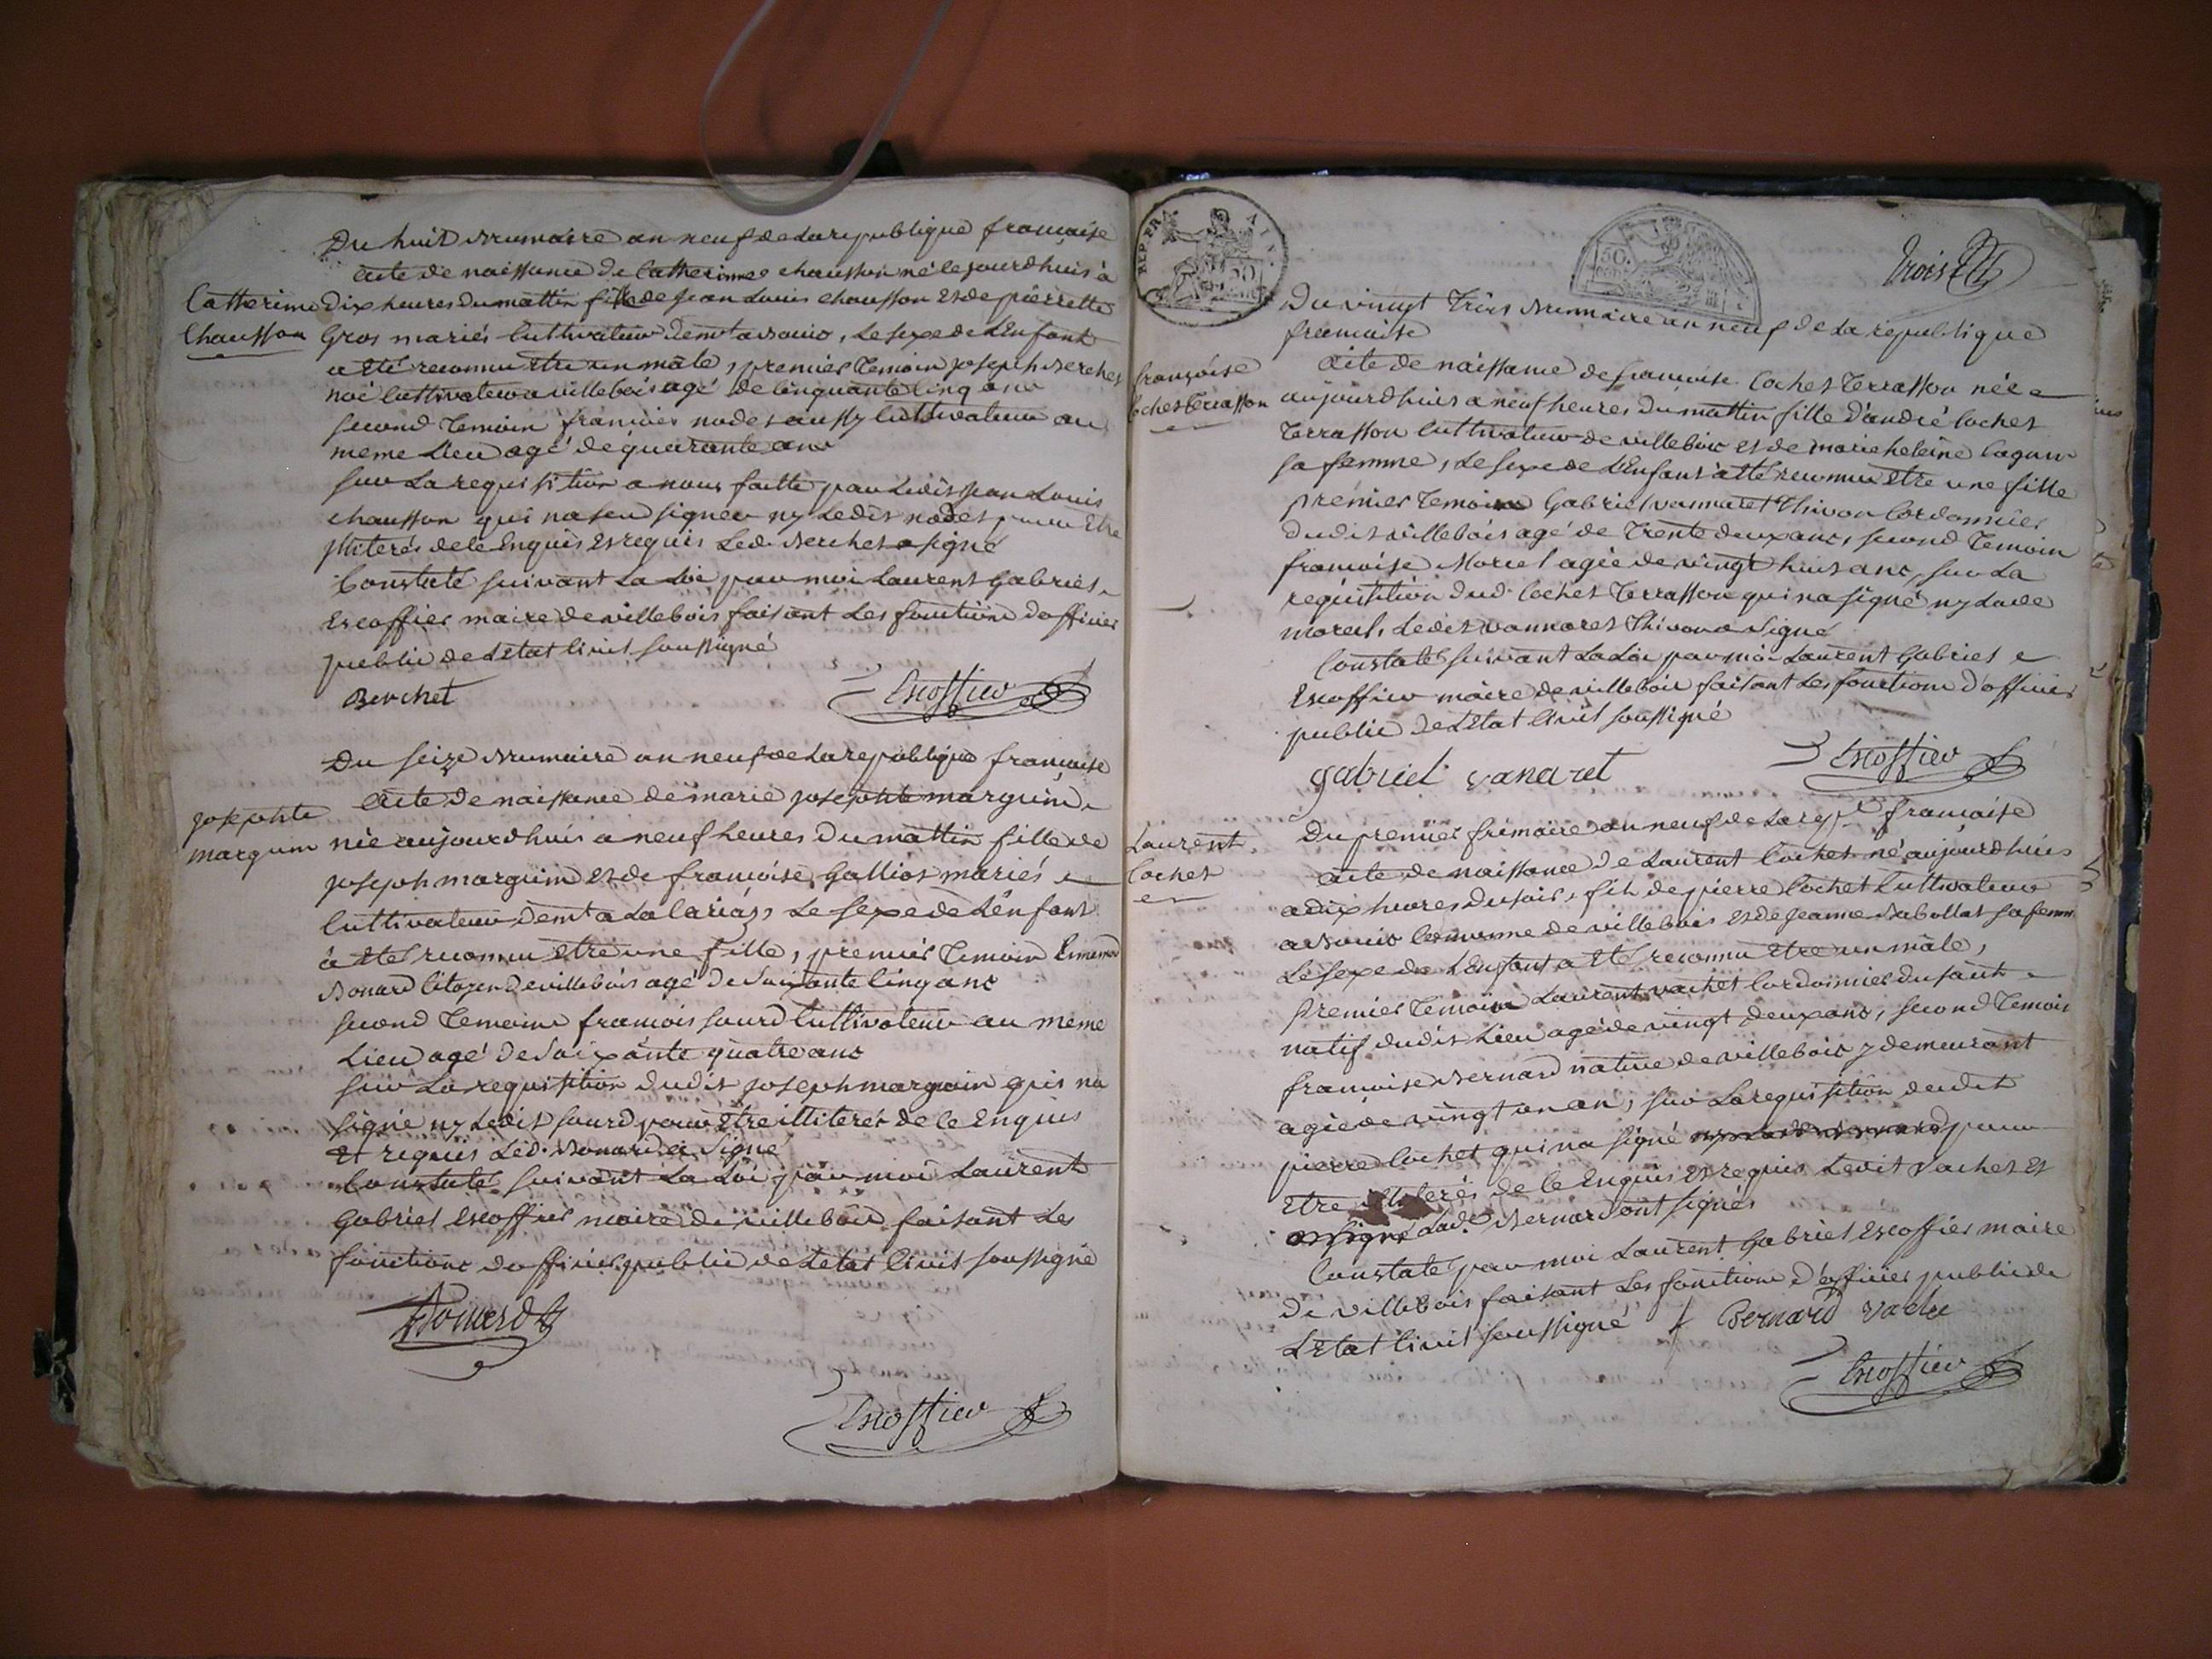 Du huit Brumaire an neuf de La republique française
acte de naissance de Catherinne chausson né le jourdhuis a
Catterine
Chausson
dix heures du mattin fille de Jean Louis chausson et de pierrette
Gros mariés Cultivateur demt a Bouis, Le sexe de L'Enfant
a eté reconnu etre un mâle, premier Temoin joseph Berchet
noé Cultivateur a villebois agé de Cinquante Cinq ans
second Temoin francois nodet aussy Cultivateur au
meme Lieu agé de quarante ans
sur La requisition a nous faitte par Ledit Jean Louis
chausson qui na seu signer ny Ledit nodet pour Etre
illiterés de ce Enquis et requis Led. Berchet a signé
Constaté suivant La Loi par moi Laurent Gabriel
Escoffier maire de villebois faisant Les fonctions d'officier
public de L'etat Civil soussigné
Berchet
Escoffier
Du seize Brumaire an neuf de La republique française
acte de naissance de marie josephte marguin
josephte
marguin
née aujourdhuis a neuf heures du mattin fille de
joseph marguin et de francoise Galliot mariés
Cultivateur demt a La Lariaz, Le sexe de L'énfant
à eté reconnu etre une fille, premier Temoin
Bonard Citoyen de villebois agé de Soixante Cinq ans
second Temoin francois sourd Cultivateur au meme
Lieu agé de Soixante quatre ans
sur La requisition dudit joseph marguin qui na
signé ny Ledit sourd pour Etre illiterés de ce Enquis
et requis Led. Bonard a Signé
Constaté suivant La Loi par moi Laurent
Gabriel Escoffier maire de villebois faisant Les
fonctions d'officier public de Letat Civil soussigné
Bonard
Escoffier
REP. FRA
50
trois
Du vingt Trois Brumaire an neuf de La republique
francaise
acte de naissance de francoise Cochet Terrasson née
françoise
Cochet terrasson
aujourdhuis a neuf heures du mattin fille d'andré Cochet
Terrasson Cultivateur de villebois et de marie heleine Cagnin
sa femme, Le sexe de L'Enfant a eté reconnu etre une fille
premier Temoin Gabriel vannaret Thivon Cordonnier
dudit villebois agé de Trente deux ans, second Temoin
francoise Morel agée de vingt huit ans, sur La
requisition dud. Cochet Terrasson qui na signé ny Lade
morel, Ledit vannaret Thivon a Signé
Constaté suivant La Loi par moi Laurent Gabriel
Escoffier maire de villebois faisant Les fonctions d'officier
public de L'Etat Civil soussigné
gabriel vanaret
Escoffier
Du premier frimaire an neuf de La repe francaise
Laurent
Cochet
acte de naissance de Laurent Cochet né aujourdhuis
a dix heures du soir, fils de pierre Cochet Cultivateur
a Bouis Commune de villebois et de Jeanne Rabollat sa femme
Le sexe de L'Enfant a eté reconnu etre un mâle,
premier Temoin Laurent vachet Cordonnier du sault
natif dudit Lieu agé de vingt deux ans, second Temoin
francoise Bernard native de villebois y demeurant
agée de vingt un an, sur La requisition dudit
pierre Cochet qui na signé pour
Etre illiterés de ce Enquis et requis Ledit vachet Et
Lade Bernard ont signés
Constaté par moi Laurent Gabriel Escoffier maire
de villebois faisant Les fonctions d'officier public de
L'Etat Civil soussigné f Bernard vache
Escoffier